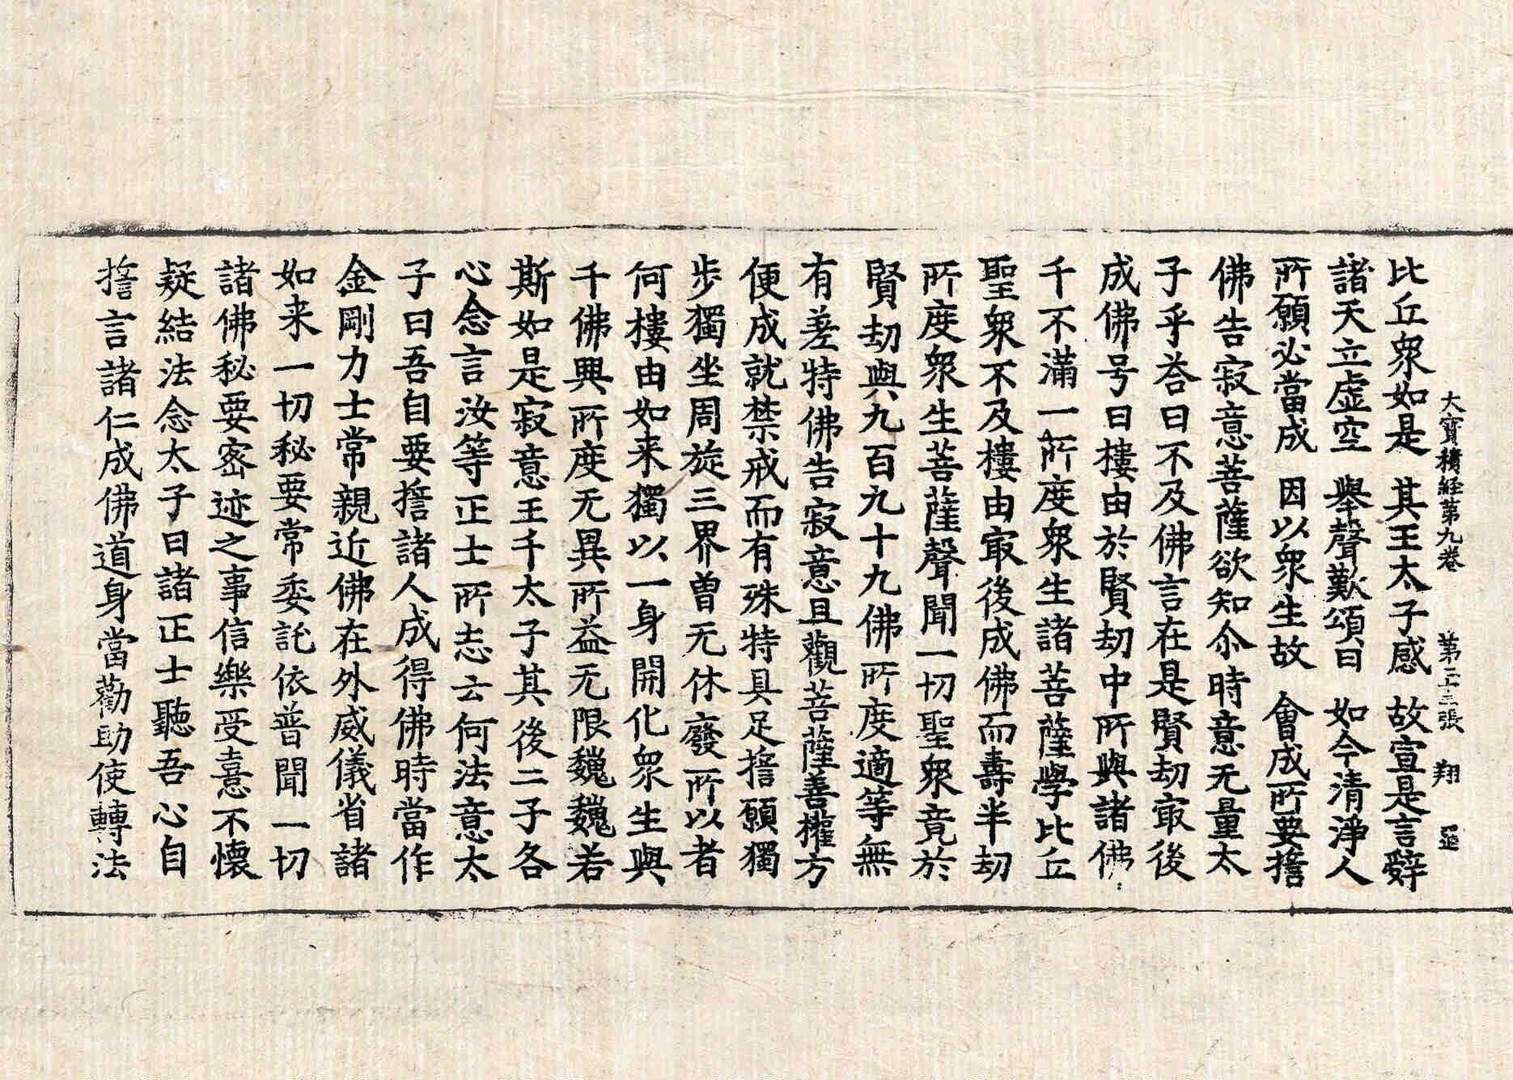 大寶積經第九卷 第二三張 翔
比丘衆如是 其王太子感 故宣是言辭
諸天立虛空 舉聲歎頌曰 如今清淨人
所願必當成 因以衆生故 會成所要擔
佛告寂意菩薩欲知尒時意无量太
子乎荅曰不及佛言在是賢劫㝡後
成佛号曰樓由於賢劫中所興諸佛
千不滿一所度衆生諸菩薩學比丘
聖衆不及樓由㝡後成佛而壽半劫
所度衆生菩薩聲聞一切聖衆竟於
賢劫與九百九十九佛所度適等無
有差特佛告寂意且觀菩薩善權方
便成就禁戒而有殊特具足擔願獨
步獨坐周旋三界曾无休廢所以者
何樓由如来獨以一身開化衆生與
千佛興所度无異所益无限巍巍若
斯如是寂意王千太子其後二子各
心念言汝等正士所志云何法意太
子曰吾自要擔諸人成得佛時當作
金剛力士常親近佛在外威儀省諸
如来一切秘要常委託依普聞一切
諸佛秘要密迹之事信樂受憙不懷
疑結法念太子曰諸正士聽吾心自
擔言諸仁成佛道身當勸助使轉法